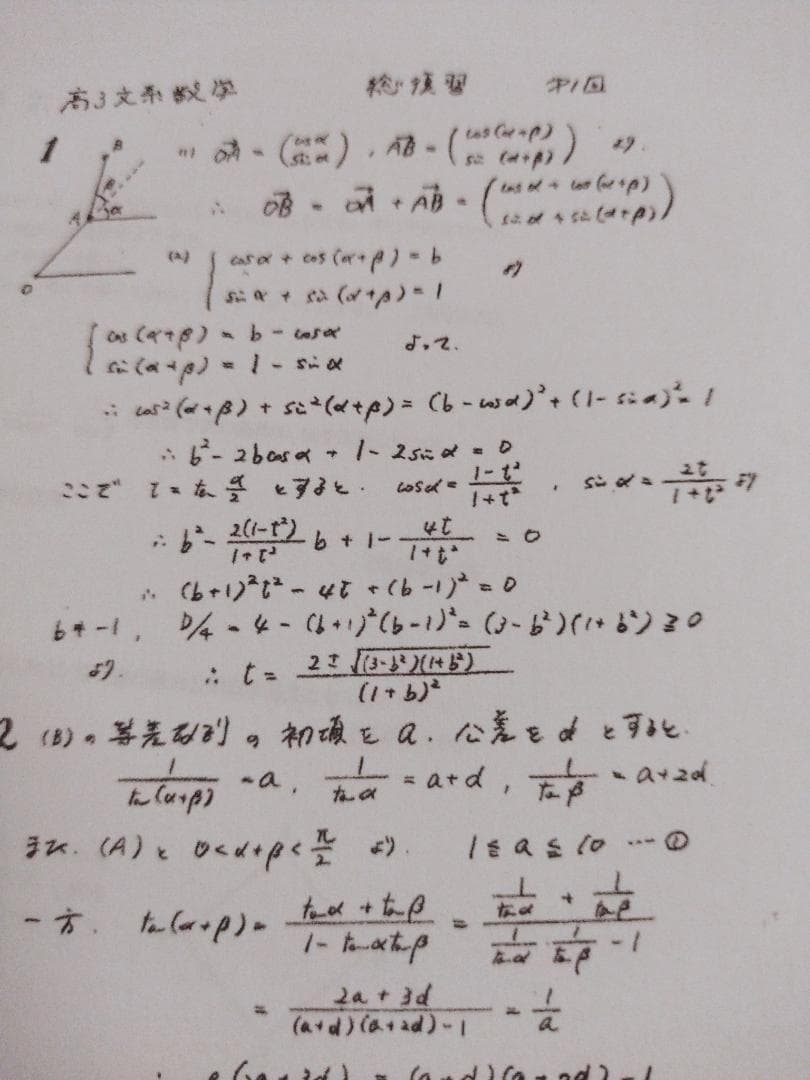 高3文系数学 総復習 第1回
1 (1) OA→ = (cosα sinα), AB→ = (cos(α+β) sin(α+β)) より
B
β
A α
∴ OB→ = OA→ + AB→ = (cosα + cos(α+β) sinα + sin(α+β))
O
(2) { cosα + cos(α+β) = b
sinα + sin(α+β) = 1 より
{ cos(α+β) = b - cosα
sin(α+β) = 1 - sinα よって.
∴ cos²(α+β) + sin²(α+β) = (b - cosα)² + (1 - sinα)² = 1
∴ b² - 2bcosα + 1 - 2sinα = 0
ここで t = tan α/2 とすると. cosα = (1-t²)/(1+t²), sinα = 2t/(1+t²) より
∴ b² - 2(1-t²)/(1+t²) b + 1 - 4t/(1+t²) = 0
∴ (b+1)²t² - 4t + (b-1)² = 0
b ≠ -1, D/4 = 4 - (b+1)²(b-1)² = (3-b²)(1+b²) ≧ 0
より. ∴ t = (2 ± √(3-b²)(1+b²))/(1+b)²
2 (B)の等差数列の初項をa. 公差をdとすると.
1/tan(α+β) = a, 1/tanα = a+d, 1/tanβ = a+2d
また. (A)と 0<α+β<π/2 より. 1 ≦ a ≦ 10 … ①
一方. tan(α+β) = (tanα + tanβ)/(1 - tanαtanβ) = (1/tanα + 1/tanβ)/(1/tanα · 1/tanβ - 1)
= (2a+3d)/((a+d)(a+2d)-1) = 1/a
∴ a(2a+3d) = (a+d)(a+2d)-1